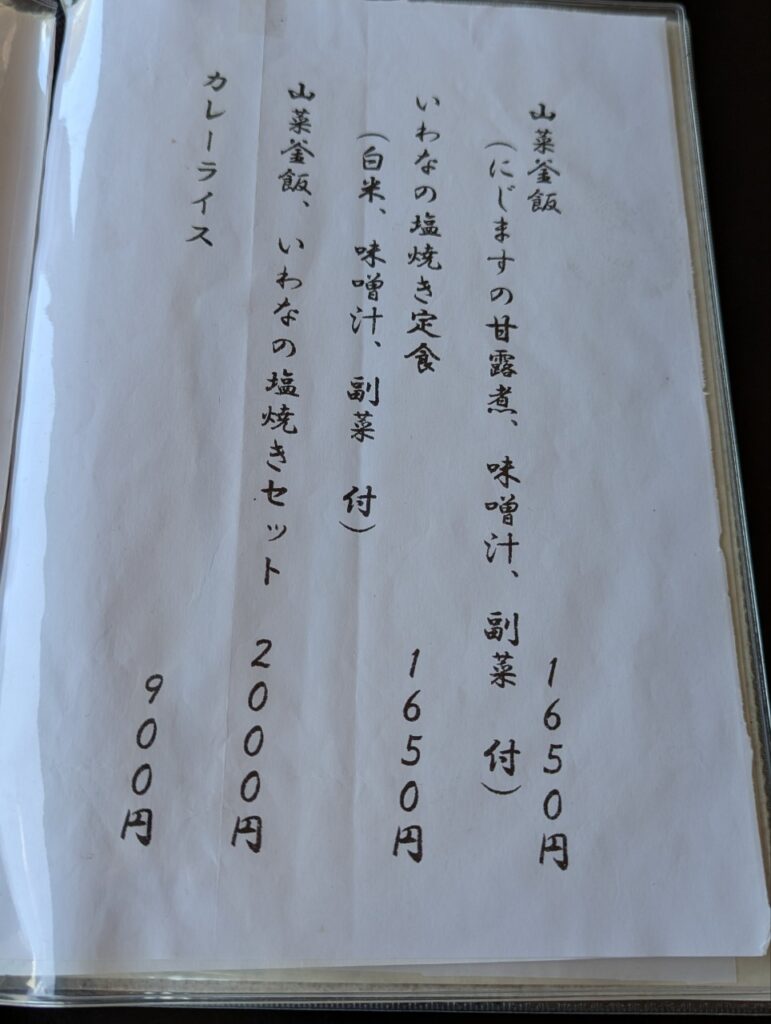 山菜釜飯 1650円
(にじますの甘露煮、味噌汁、副菜 付)
いわなの塩焼き定食 1650円
(白米、味噌汁、副菜 付)
山菜釜飯、いわなの塩焼きセット 2000円
カレーライス 900円